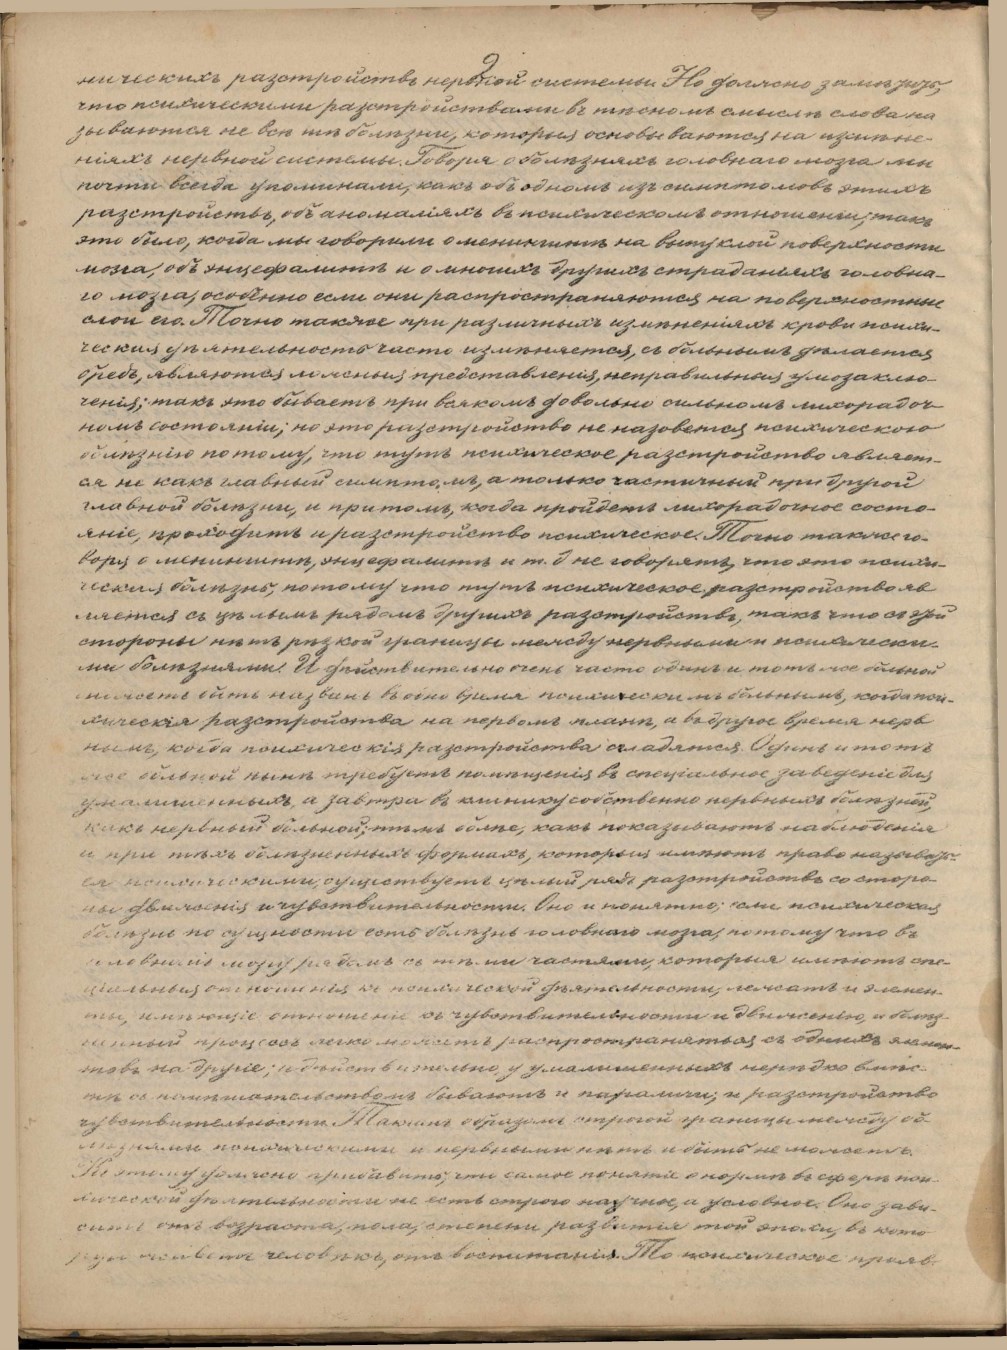 2
ническихъ разстройствъ нервной системы. Но должно замѣтить,
что психическими разстройствами въ тѣсномъ смыслѣ слова на
зываются не всѣ тѣ болѣзни, которыя основываются на измѣне-
ніяхъ нервной системы. Говоря о болѣзняхъ головнаго мозга мы
почти всегда упоминали, какъ объ одномъ изъ симптомовъ этихъ
разстройствъ, объ аномаліяхъ въ психическомъ отношеніи; такъ
это было, когда мы говорили о менингитѣ на выпуклой поверхности
мозга, объ энцефалитѣ и о многихъ другихъ страданіяхъ головна-
го мозга, особенно если они распространяются на поверхностные
слои его. Точно также при различныхъ измѣненіяхъ крови психи-
ческая дѣятельность часто измѣняется, съ больнымъ дѣлается
бредъ, являются ложныя представленія, неправильныя умозаклю-
ченія; такъ это бываетъ при всякомъ довольно сильномъ лихорадоч-
номъ состояніи; но это разстройство не назовется психическою
болѣзнію потому, что тутъ психическое разстройство являет-
ся не какъ главный симптомъ, а только частичный при другой
главной болѣзни, и притомъ, когда пройдетъ лихорадочное состо-
яніе, проходитъ и разстройство психическое. Точно также го-
воря о менингитѣ, энцефалитѣ и т. д не говорятъ, что это психи-
ческая болѣзнь, потому что тутъ психическое разстройство яв
ляется съ цѣлымъ рядомъ другихъ разстройствъ, такъ что съ этой
стороны нѣтъ рѣзкой границы между нервными и психически-
ми болѣзнями. И дѣйствительно очень часто одинъ и тотъ же больной
можетъ быть названъ въ одно время психическимъ больнымъ, когда пси-
хическія разстройства на первомъ планѣ, а въ другое время нерв
нымъ, когда психическія разстройства сгладятся. Одинъ и тотъ
же больной нынѣ требуетъ помѣщенія въ спеціальное заведеніе для
умалишенныхъ, а завтра въ клинику собственно нервныхъ болѣзней,
какъ нервный больной; тѣмъ болѣе, какъ показываютъ наблюденія
и при тѣхъ болѣзненныхъ формахъ, которыя имѣютъ право называть
ся психическими, существуетъ цѣлый рядъ разстройствъ со сторо-
ны движенія и чувствительности. Оно и понятно; если психическая
болѣзнь по сущности есть болѣзнь головнаго мозга, потому что въ
головномъ мозгу рядомъ съ тѣми частями, которыя имѣютъ спе-
ціальныя отношенія къ психической дѣятельности, лежатъ и элемен-
ты, имѣющіе отношеніе къ чувствительности и движенію, и болѣз-
ненный процессъ легко можетъ распространяться съ однихъ элемен-
товъ на другіе; и дѣйствительно, у умалишенныхъ нерѣдко вмѣс-
тѣ съ помѣшательствомъ бываютъ и параличи, и разстройство
чувствительности. Такимъ образомъ строгой границы между бо-
лѣзнями психическими и нервными нѣтъ и быть не можетъ.
Къ этому должно прибавить, что самое понятіе о нормѣ въ сферѣ пси-
хической дѣятельности не есть строго научное, а условное. Оно зави-
ситъ отъ возраста, пола, степени развитія той эпохи, въ кото
рую живетъ человѣкъ, отъ воспитанія. То психическое прояв-